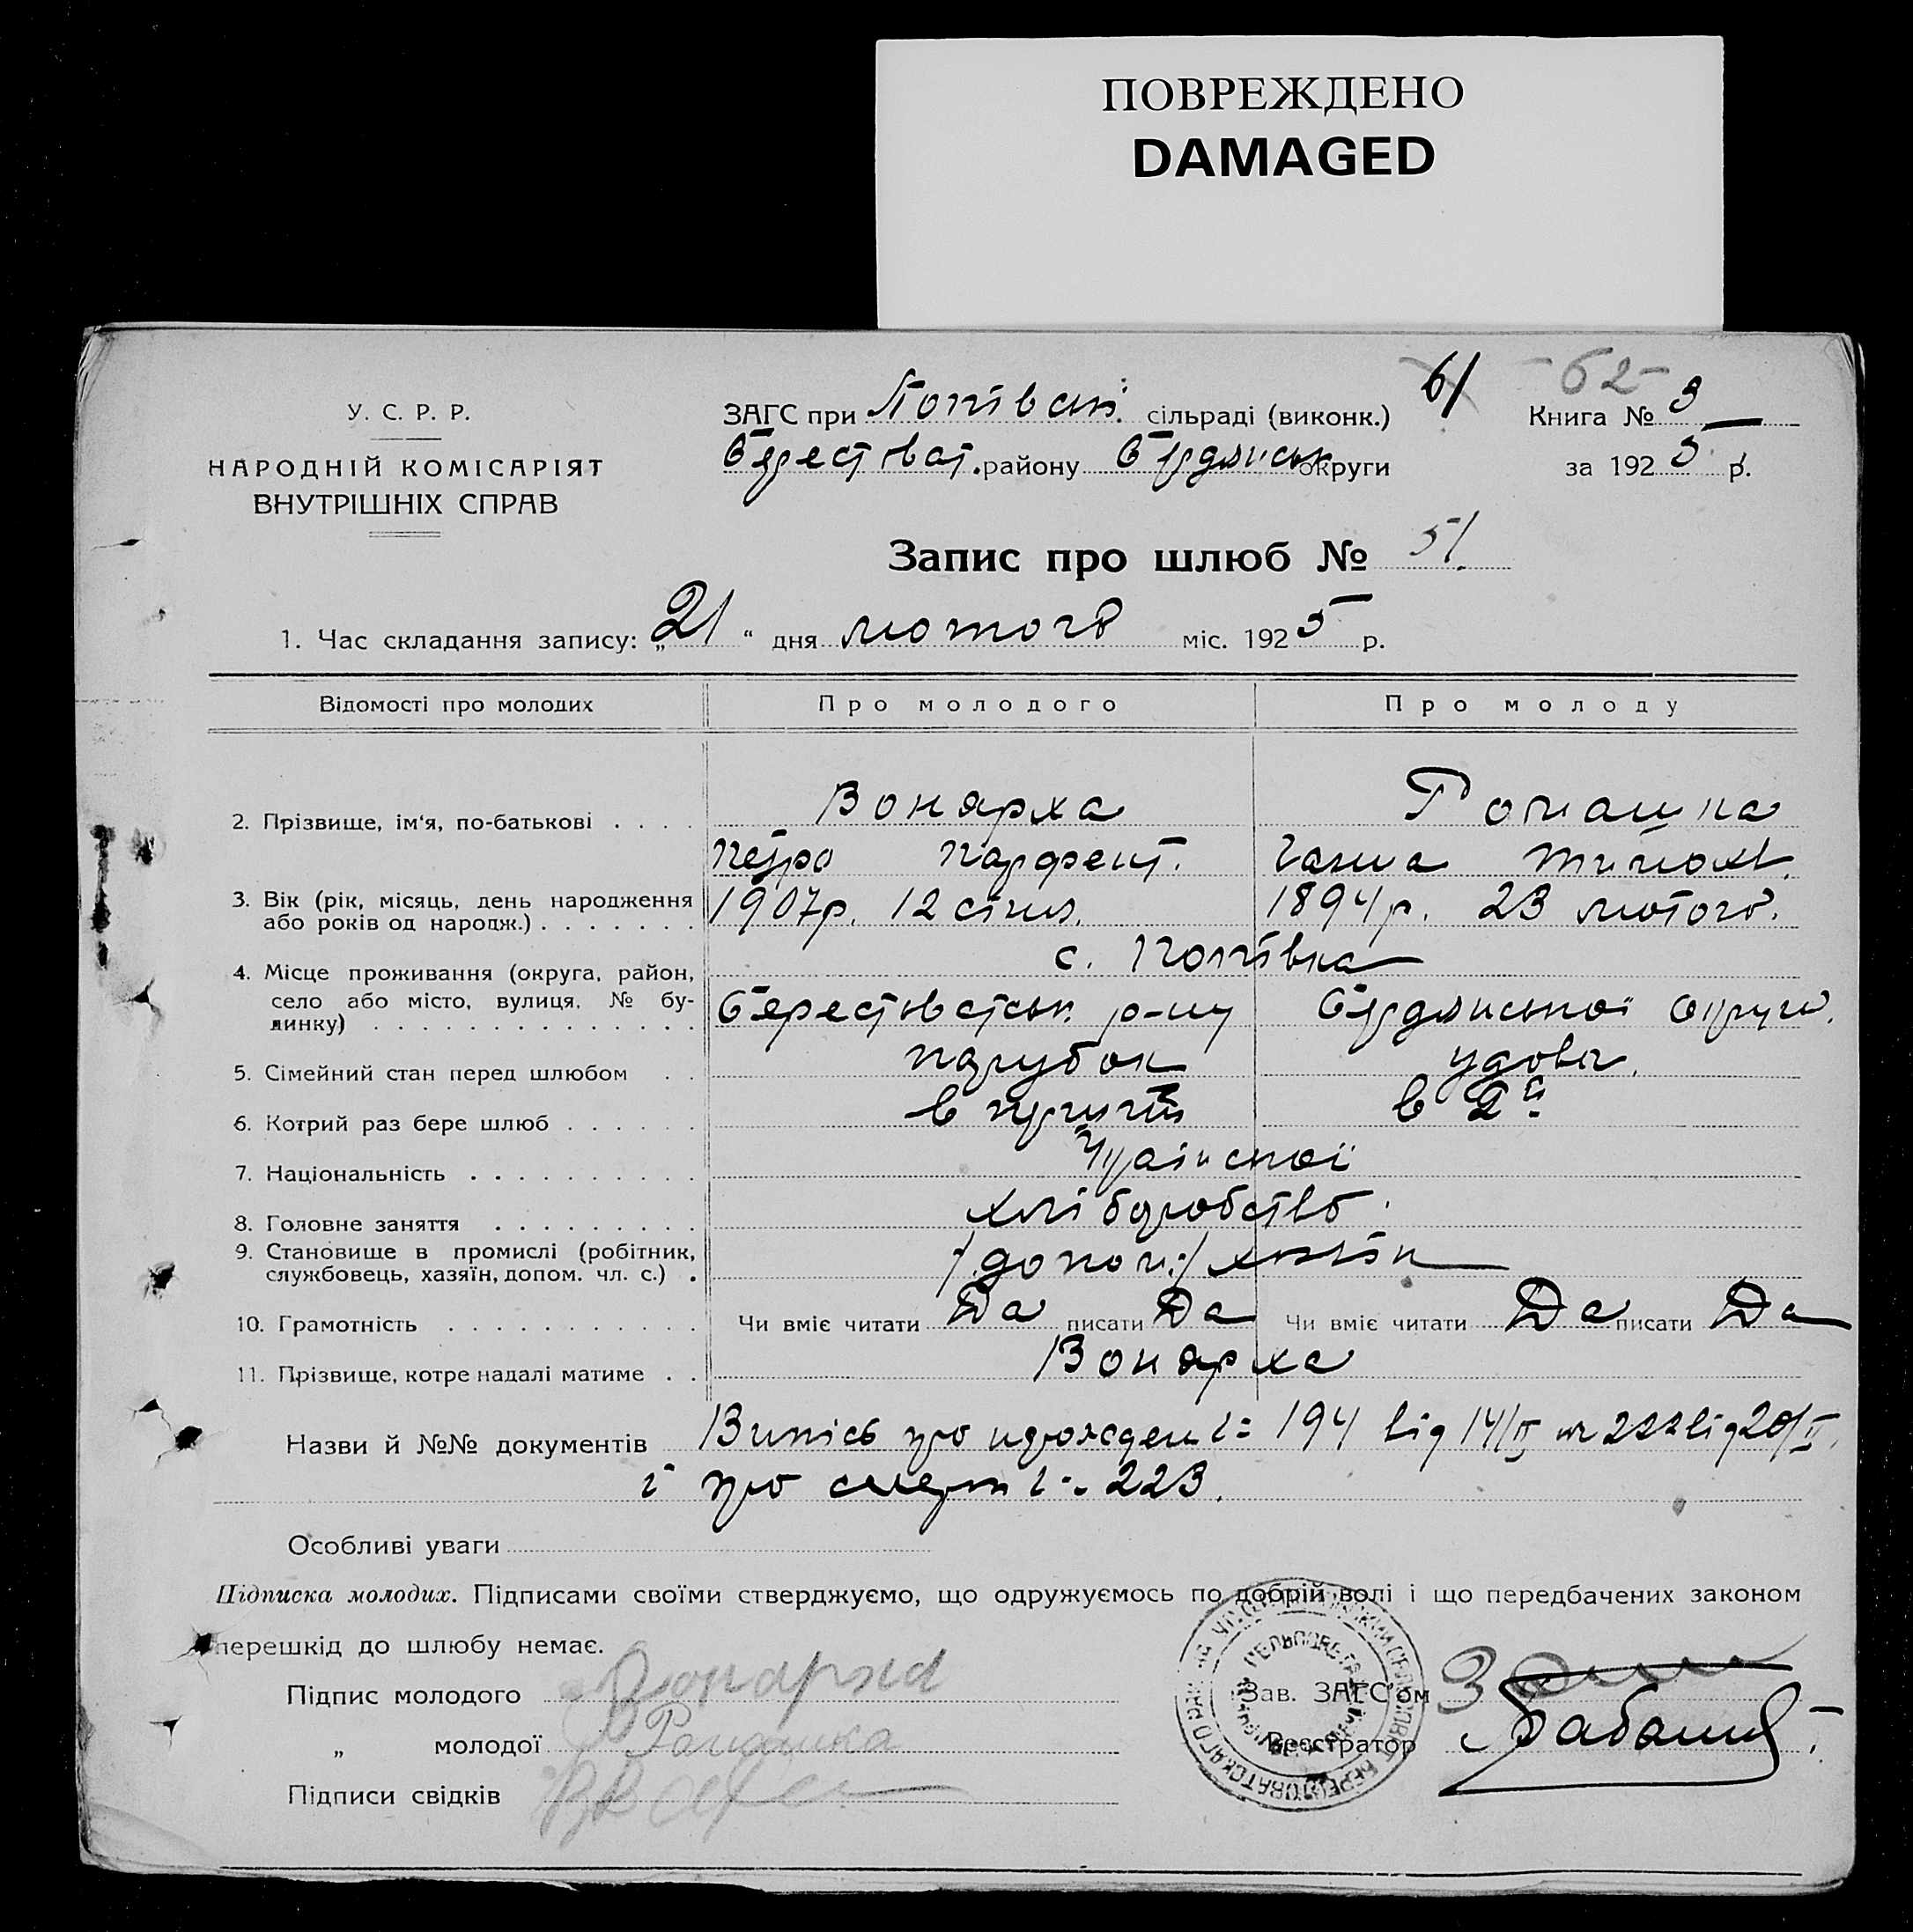 ПОВРЕЖДЕНО
DAMAGED
61 -62-
У. С. Р. Р.
НАРОДНІЙ КОМІСАРІЯТ
ВНУТРІШНІХ СПРАВ
ЗАГС при Попівськ. сільраді (виконк.)
Берестоват. району Бердянськ округи
Книга № 3
за 1925 р.
Запис про шлюб № 51.
1. Час складання запису: „21“ дня лютого міс. 1925 р.
Відомості про молодих Про молодого Про молоду
2. Прізвище, ім'я, по-батькові . . . . Вонярха Ромашка
Петро Парфент. Ганна Тимохв.
3. Вік (рік, місяць, день народження або років од народж.) . . . . . . . 1907р. 12 січня. 1894р. 23 лютого.
с. Попівка
4. Місце проживання (округа, район, село або місто, вулиця, № будинку) . . . . . . . . . . . . . . Берестоватськ. р-ну Бердянської округи.
5. Сімейний стан перед шлюбом . . парубок удова.
6. Котрий раз бере шлюб . . . . . . в перший в 2й
7. Національність . . . . . . . . . . Української
8. Головне заняття . . . . . . . . . хліборобство
9. Становище в промислі (робітник, службовець, хазяїн, допом. чл. с.) . /допом:/ хазяїн
10. Грамотність . . . . . . . . . . . Чи вміє читати Да писати Да Чи вміє читати Да писати Да
11. Прізвище, котре надалі матиме . . Вонярха
Назви й №№ документів Випись про народжен і= 194 від 14/II № 222 від 20/II.
і про смерть 223.
Особливі уваги
Підписка молодих. Підписами своїми стверджуємо, що одружуємось по добрій волі і що передбачених законом
перешкід до шлюбу немає.
Підпис молодого Вонарха
„ молодої Ромашка
Підписи свідків
Зав. ЗАГС'ом
Реєстратор